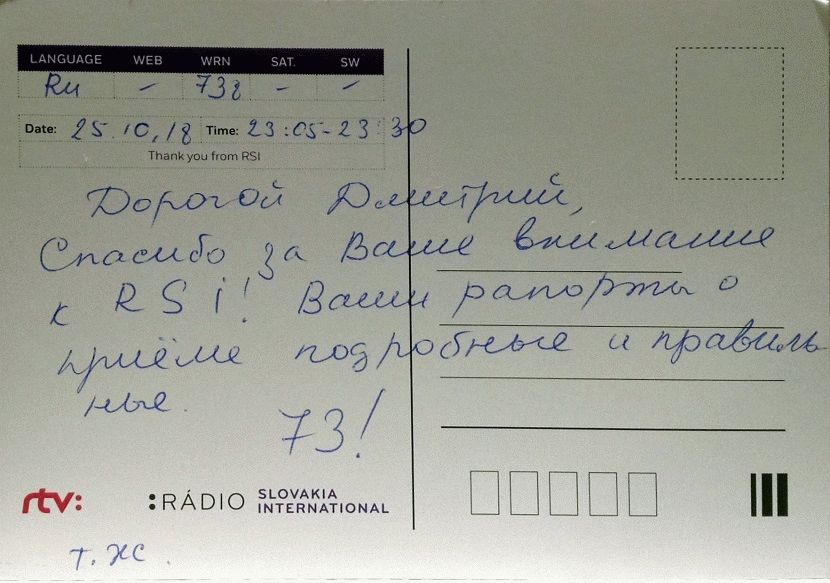 LANGUAGE WEB WRN SAT. SW
Ru - 738 - -
Date: 25.10.18 Time: 23:05-23:30
Thank you from RSI
Дорогой Дмитрий,
Спасибо за Ваше внимание
к RSi! Ваши рапорты о
приёме подробные и правиль
ные.
73!
rtv:
:RÁDIO SLOVAKIA
INTERNATIONAL